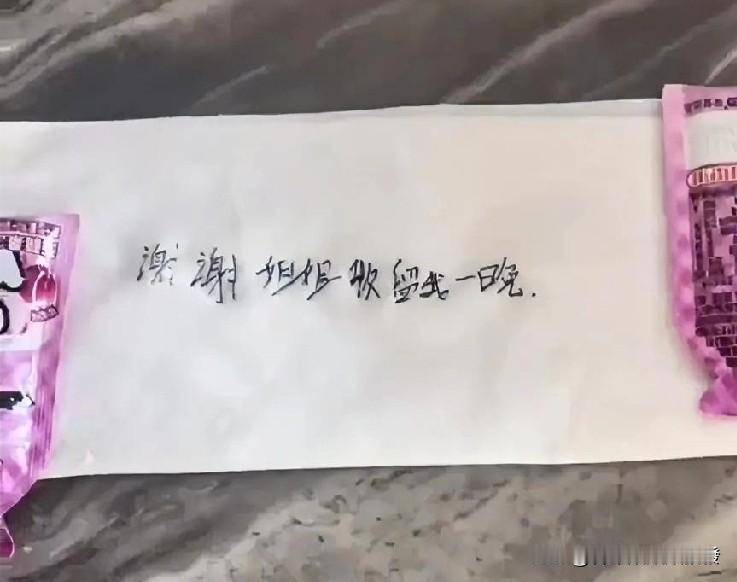 谢谢姐姐收留我一晚.